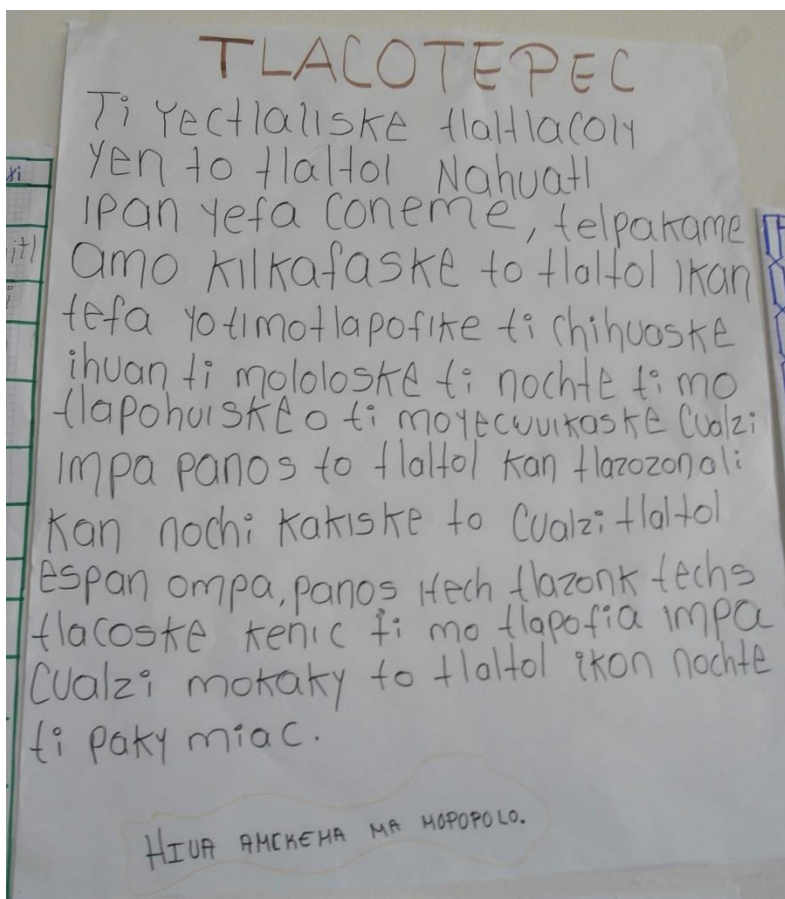 TLACOTEPEC
Ti Yectlaliske tlaltlacoly
Yen to tlaltol Nahuatl
ipan yefa Coneme, telpakame
amo kilkafaske to tlaltol ikan
tefa yotimotlapofike ti chihuaske
ihuan ti mololoske ti nochte ti mo
tlapohuiske o ti moyecwuikaske Cualzi
impa panos to tlaltol kan tlazozonali
kan nochi kakiske to Cualzi tlaltol
espan ompa, panos itech tlazonk techs
tlacoske kenic ti mo tlapofia impa
Cualzi mokaky to tlaltol ikon nochte
ti paky miac.
HIUA AMCKEMA MA MOPOPOLO.